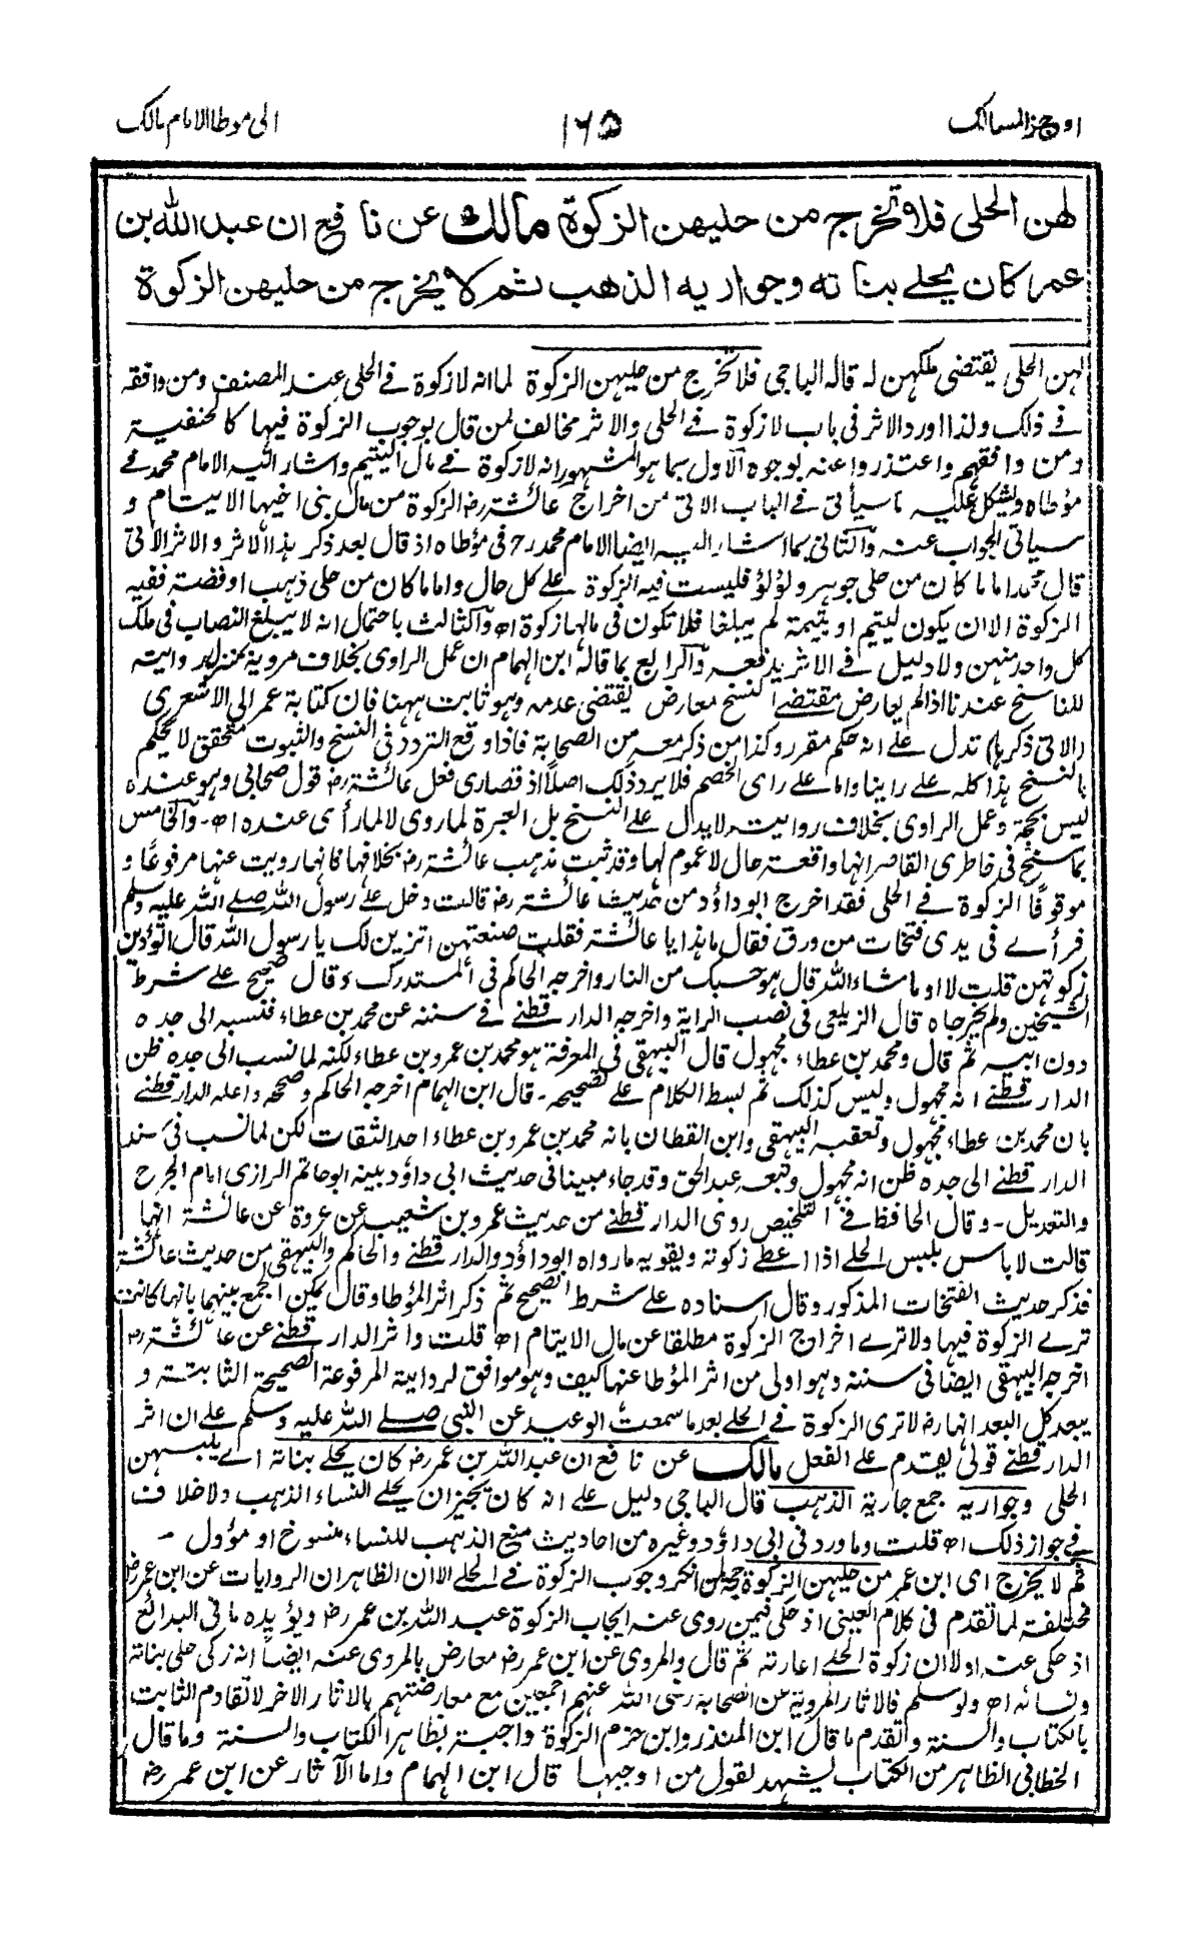 اوجز المسالك
١٦٥
الى موطا الامام مالك
لهن الحلى فلا تخرج من حليهن الزكوة مالك عن نافع ان عبد الله بن
عمر كان يحلے بناته وجواريه الذهب ثم لا يخرج من حليهن الزكوة
لهن الحلى يقتضى ملكهن له قاله الباجى فلا تخرج من حليهن الزكوة لما انه لا زكوة فے الحلى عند المصنف ومن وافقه
فے ذلك ولذا اورد الاثر فى باب لا زكوة فے الحلى والاثر مخالف لمن قال بوجوب الزكوة فيها كالحنفية
ومن وافقهم واعتذروا عنه بوجوه الاول بما هو المشهور انه لا زكوة فے مال اليتيم واشار اليه الامام محمد فے
مؤطاه ويشكل عليه ما سيأتى فے الباب الاتى من اخراج عائشة رض الزكوة من مال بنى اخيها الايتام و
سياتى الجواب عنه والثانى بما اشار اليه ايضا الامام محمد رح فى مؤطاه اذ قال بعد ذكر هذا الاثر والاثر الاتى
قال محمد اما ما كان من حلى جوهر ولؤلؤ فليست فيه الزكوة علے كل حال واما ما كان من حلى ذهب او فضة ففيه
الزكوة الا ان يكون ليتيم او يتيمة لم يبلغا فلا تكون فى مالهما زكوة اه والثالث باحتمال انه لا يبلغ النصاب فى ملك
كل واحد منهن ولا دليل فے الاثر يدفعه والرابع بما قاله ابن الهمام ان عمل الراوى بخلاف مرويه بمنزلة روايته
للناسخ عندنا اذا لم يعارض مقتضى النسخ معارض يقتضى عدمه وهو ثابت ههنا فان كتابة عمر الى الاشعرى
(الاتى ذكرها) تدل علے انه حكم مقرر وكذا من ذكر معه من الصحابة فاذا وقع التردد فى النسخ والثبوت متحقق لا يحكم
بالنسخ هذا كله علے راينا واما علے راى الخصم فلا يرد ذلك اصلا اذ قصارى فعل عائشة رض قول صحابى وهو عنده
ليس بحجة وعمل الراوى بخلاف روايته لا يدل علے النسخ بل العبرة لما روى لا لما رأى عنده اه۔ والخامس
بما سنح فى خاطرى القاصر انها واقعة حال لا عموم لها وقد ثبت مذهب عائشة رض بخلافها فانها رويت عنها مرفوعا و
موقوفا الزكوة فے الحلى فقد اخرج ابو داؤد من حديث عائشة رض قالت دخل علے رسول الله صلے الله عليه وسلم
فرأے فى يدى فتخات من ورق فقال ما هذا يا عائشة فقلت صنعتهن اتزين لك يا رسول الله قال اتؤدين
زكوتهن قلت لا او ما شاء الله قال هو حسبك من النار واخرجه الحاكم فى المستدرك وقال صحيح علے شرط
الشيخين ولم يخرجاه قال الزيلعى فى نصب الراية واخرجه الدار قطنے فے سننه عن محمد بن عطاء فنسبه الى جده
دون ابيه ثم قال ومحمد بن عطاء مجهول قال البيهقى فى المعرفة هو محمد بن عمرو بن عطاء لكنه لما نسب الى جده ظن
الدار قطنے انه مجهول وليس كذلك ثم بسط الكلام علے تصحيحه۔ قال ابن الهمام اخرجه الحاكم وصححه واعله الدار قطنے
بان محمد بن عطاء مجهول وتعقبه البيهقى وابن القطان بانه محمد بن عمرو بن عطاء احد الثقات لكن لما نسب فى سند
الدار قطنے الى جده ظن انه مجهول وتبعه عبد الحق وقد جاء مبينا فى حديث ابى داؤد بينه ابو حاتم الرازى امام الجرح
والتعديل۔ وقال الحافظ فے التلخيص روى الدار قطنے من حديث عمرو بن شعيب عن عروة عن عائشة انها
قالت لا باس بلبس الحلے اذا اعطے زكوته ويقويه ما رواه ابو داؤد والدار قطنے والحاكم والبيهقى من حديث عائشة
فذكر حديث الفتخات المذكور وقال اسناده علے شرط الصحيح ثم ذكر اثر المؤطا وقال يمكن الجمع بينهما بانها كانت
ترے الزكوة فيها ولا ترے اخراج الزكوة مطلقا عن مال الايتام اه قلت واثر الدار قطنے عن عائشة رض
اخرجه البيهقى ايضا فى سننه وهو اولى من اثر المؤطا عنها كيف وهو موافق لروايته المرفوعة الصحيحة الثابتة و
يبعد كل البعد انها رض لا ترى الزكوة فے الحلے بعد ما سمعت الوعيد عن النبى صلے الله عليه وسلم علے ان اثر
الدار قطنے قولى يقدم علے الفعل مالك عن نافع ان عبد الله بن عمر رض كان يحلے بناته اے يلبسهن
الحلى وجواريه جمع جارية الذهب قال الباجى دليل علے انه كان يجيز ان يحلے النساء الذهب ولا خلاف
فے جواز ذلك اه قلت وما ورد فى ابى داؤد وغيره من احاديث منع الذهب للنساء منسوخ او مؤول ۔
ثم لا يخرج اى ابن عمر من حليهن الزكوة حجة لمن انكر وجوب الزكوة فے الحلے الا ان الظاهر ان الروايات عن ابن عمر رض
مختلفة لما تقدم فى كلام العينى اذ حكى فيمن روى عنه ايجاب الزكوة عبد الله بن عمر رض ويؤيده ما فى البدائع
اذ حكى عنه اولا ان زكوة الحلے اعارته ثم قال والمروى عن ابن عمر رض معارض بالمروى عنه ايضا انه زكى حلى بناته
ونسائه اه ولو سلم فالاثار المروية عن الصحابة رضى الله عنهم اجمعين مع معارضتهم بالاثار الاخر لا تقادم الثابت
بالكتاب والسنة وتقدم ما قال ابن المنذر وابن حزم الزكوة واجبة بظاهر الكتاب والسنة وما قال
الخطابى الظاهر من الكتاب يشهد لقول من اوجبها قال ابن الهمام واما الآثار عن ابن عمر رض